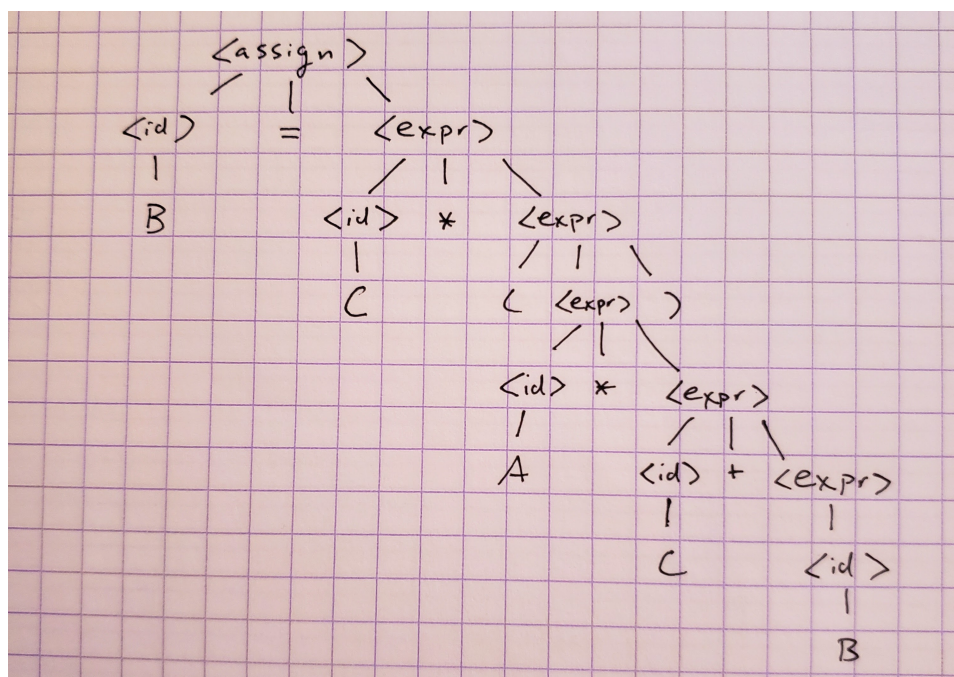 <assign>
<id> = <expr>
B <id> * <expr>
C ( <expr> )
<id> * <expr>
A <id> + <expr>
C <id>
B